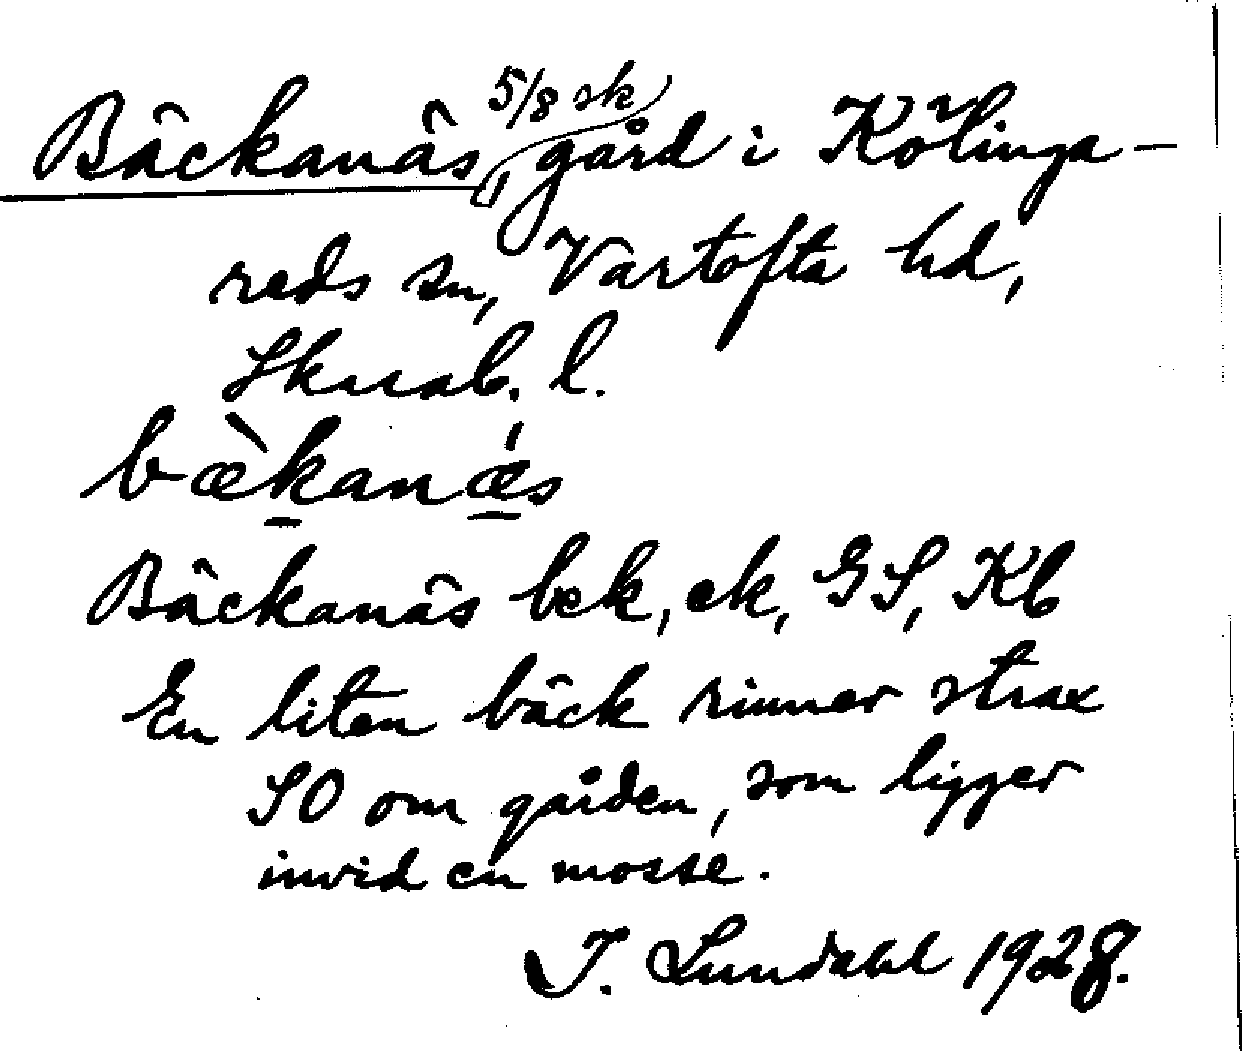 Bäckanäs, 5/8 sk gård i Kölinga-
reds sn, Vartofta hd,
Skarab. l.
bæ̀kanǽs
Bäckanäs bek, ek, GS, Kb
En liten bäck rinner strax
SO om gården, som ligger
invid en mosse.
I. Lundahl 1928.